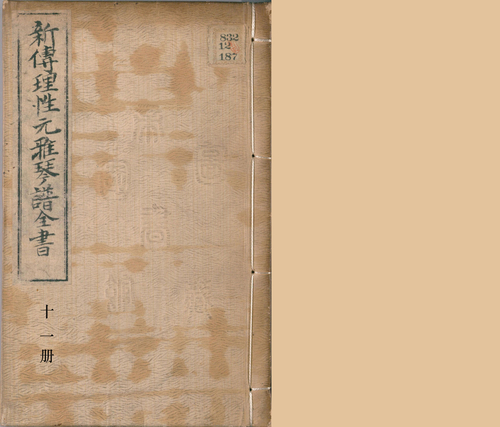 新傳理性元雅琴譜全書
十一册
832
12
187